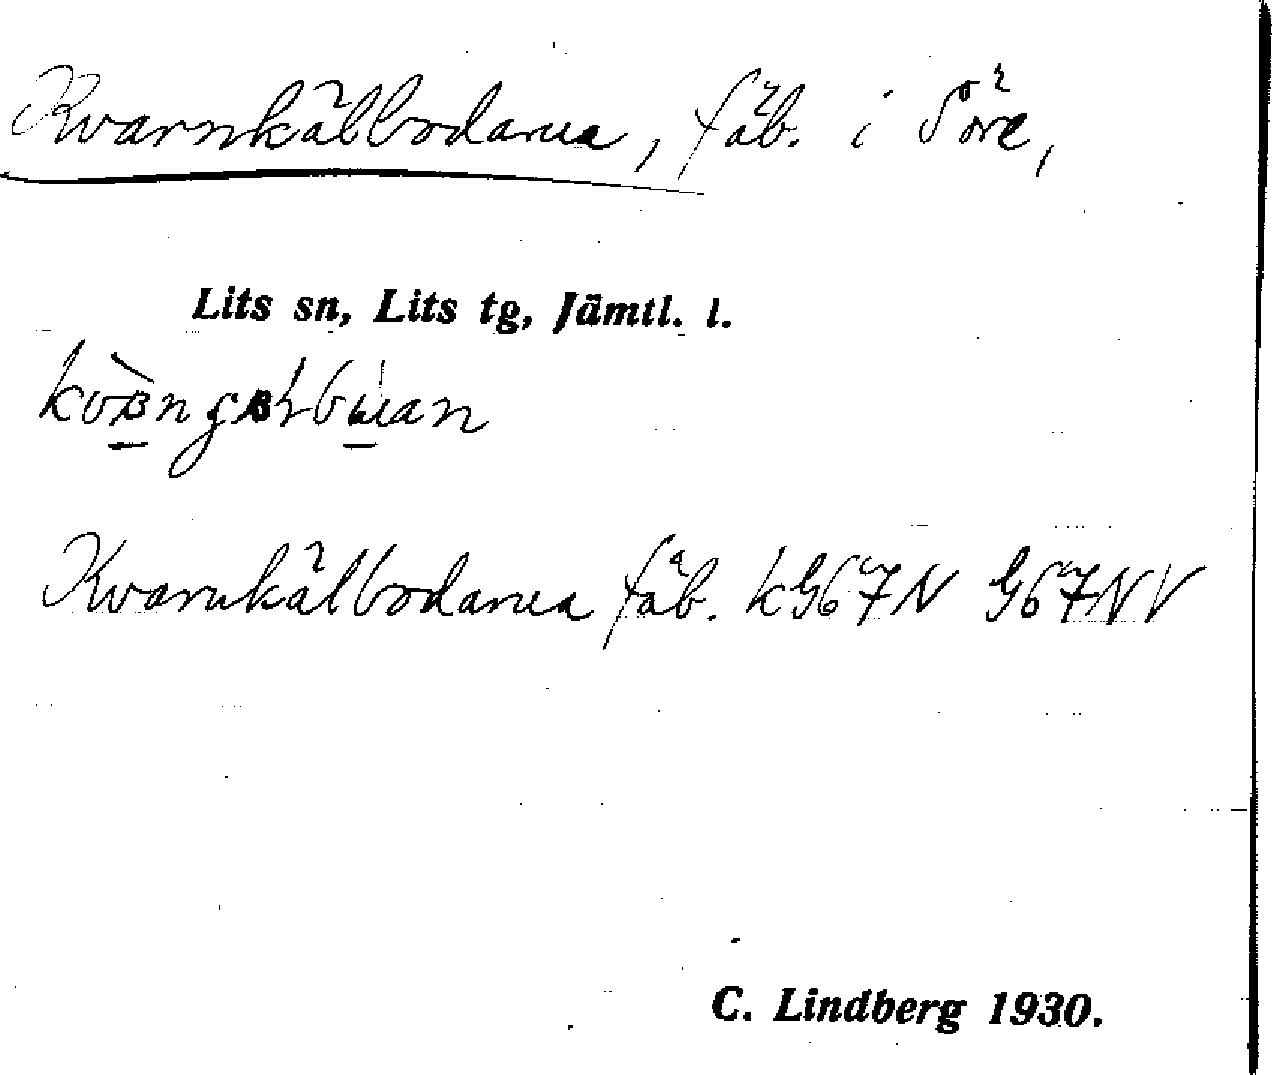 Kvarnkälbodarna, fäb. i Söre,
Lits sn, Lits tg, Jämtl. l.
Kvarnkälbodarna fäb. kG67N G67NV
C. Lindberg 1930.